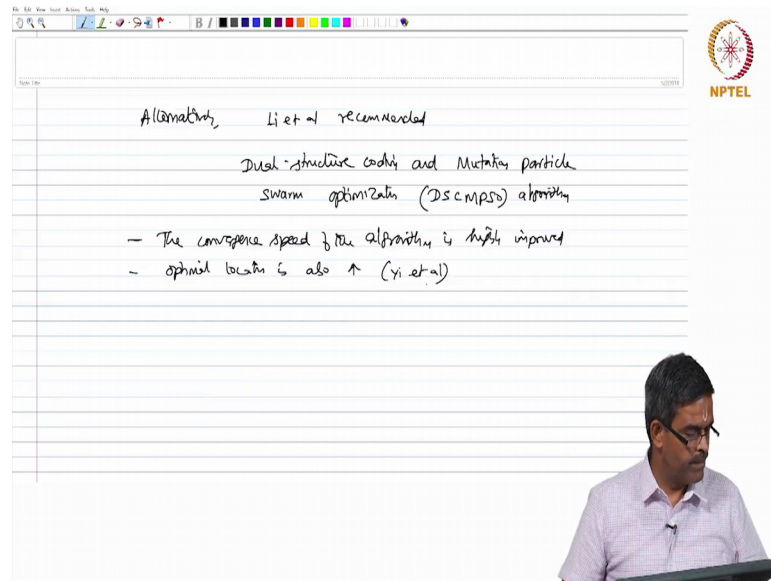 File Edit View Insert Actions Tools Help
B I
NPTEL
Note Title
5/2/2018
Alternatively, Li et al recommended
Dual-structure coding and Mutation particle
swarm optimization (DSCMPSO) algorithm
— The convergence speed of the algorithm is highly improved
— optimal location is also ↑ (Yi et al)